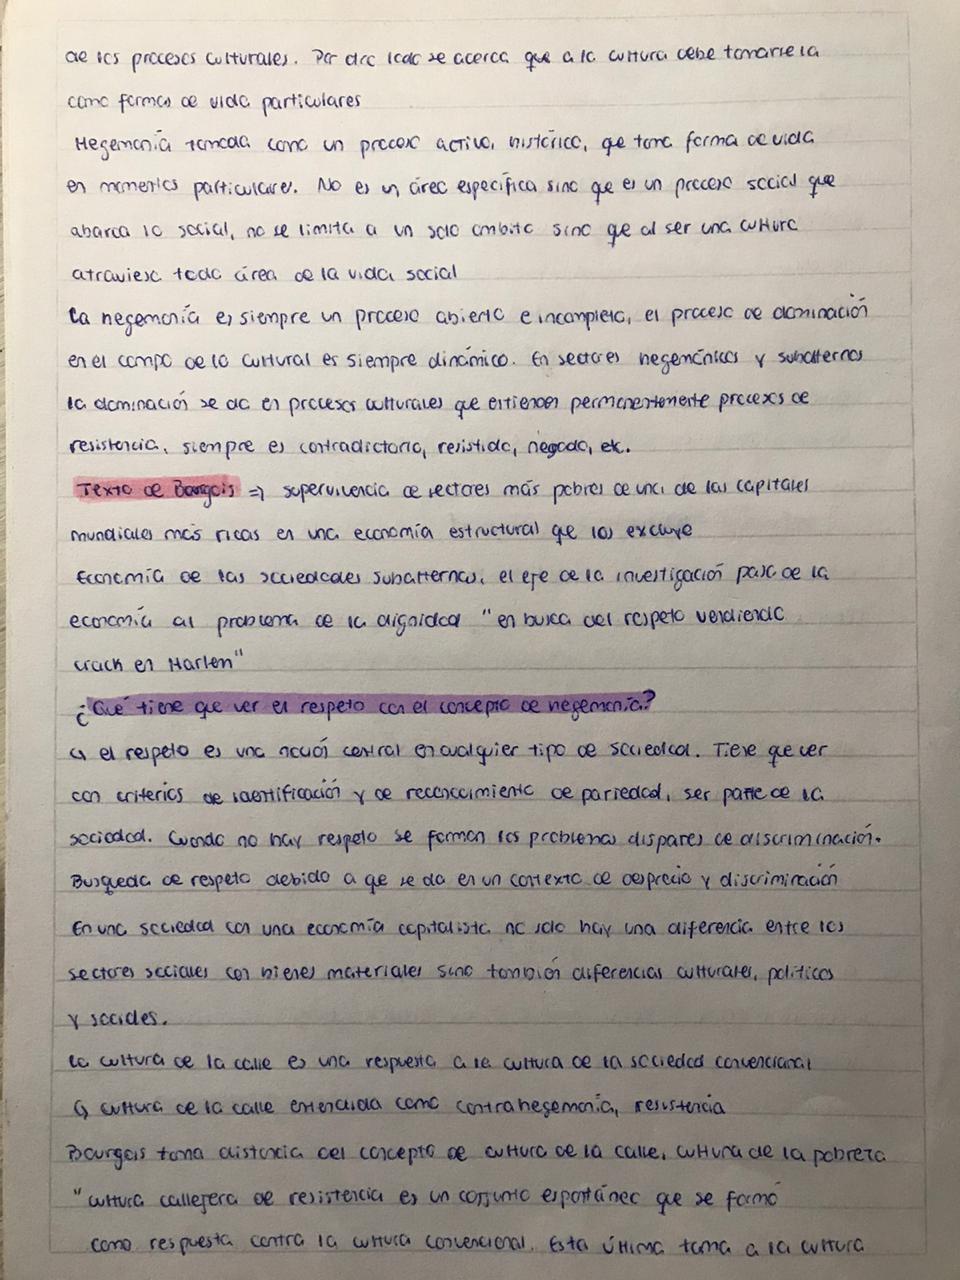 de los procesos culturales. Por otro lado se acerca que a la cultura debe tomarse la
como formas de vida particulares
Hegemonía tomada como un proceso activo, histórico, que toma forma de vida
en momentos particulares. No es un área específica sino que es un proceso social que
abarca lo social, no se limita a un solo ambito sino que al ser una cultura
atraviesa toda área de la vida social
La hegemonía es siempre un proceso abierto e incompleto, el proceso de dominación
en el campo de lo cultural es siempre dinámico. En sectores hegemónicos y subalternos
la dominación se da en procesos culturales que entienden permanentemente procesos de
resistencia, siempre es contradictorio, resistido, negado, etc.
Texto de Bourgois => supervivencia de sectores más pobres de una de las capitales
mundiales más ricas en una economía estructural que los excluye
Economía de las sociedades subalternas, el eje de la investigación pasa de la
economía al problema de la dignidad "en busca del respeto vendiendo
crack en Harlen"
¿Qué tiene que ver el respeto con el concepto de hegemonía?
↳ el respeto es una noción central en cualquier tipo de sociedad. Tiene que ver
con criterios de identificación y de reconocimiento de pariedad, ser parte de la
sociedad. Cuando no hay respeto se forman los problemas dispares de discriminación.
Busqueda de respeto debido a que se da en un contexto de desprecio y discriminación
En una sociedad con una economía capitalista no solo hay una diferencia entre los
sectores sociales con bienes materiales sino también diferencias culturales, politicas
y sociales.
La cultura de la calle es una respuesta a la cultura de la sociedad convencional
↳ cultura de la calle entendida como contrahegemonía, resistencia
Bourgois toma distancia del concepto de cultura de la calle, cultura de la pobreza
"cultura callejera de resistencia es un conjunto espontáneo que se formó
como respuesta contra la cultura convencional. Esta última toma a la cultura